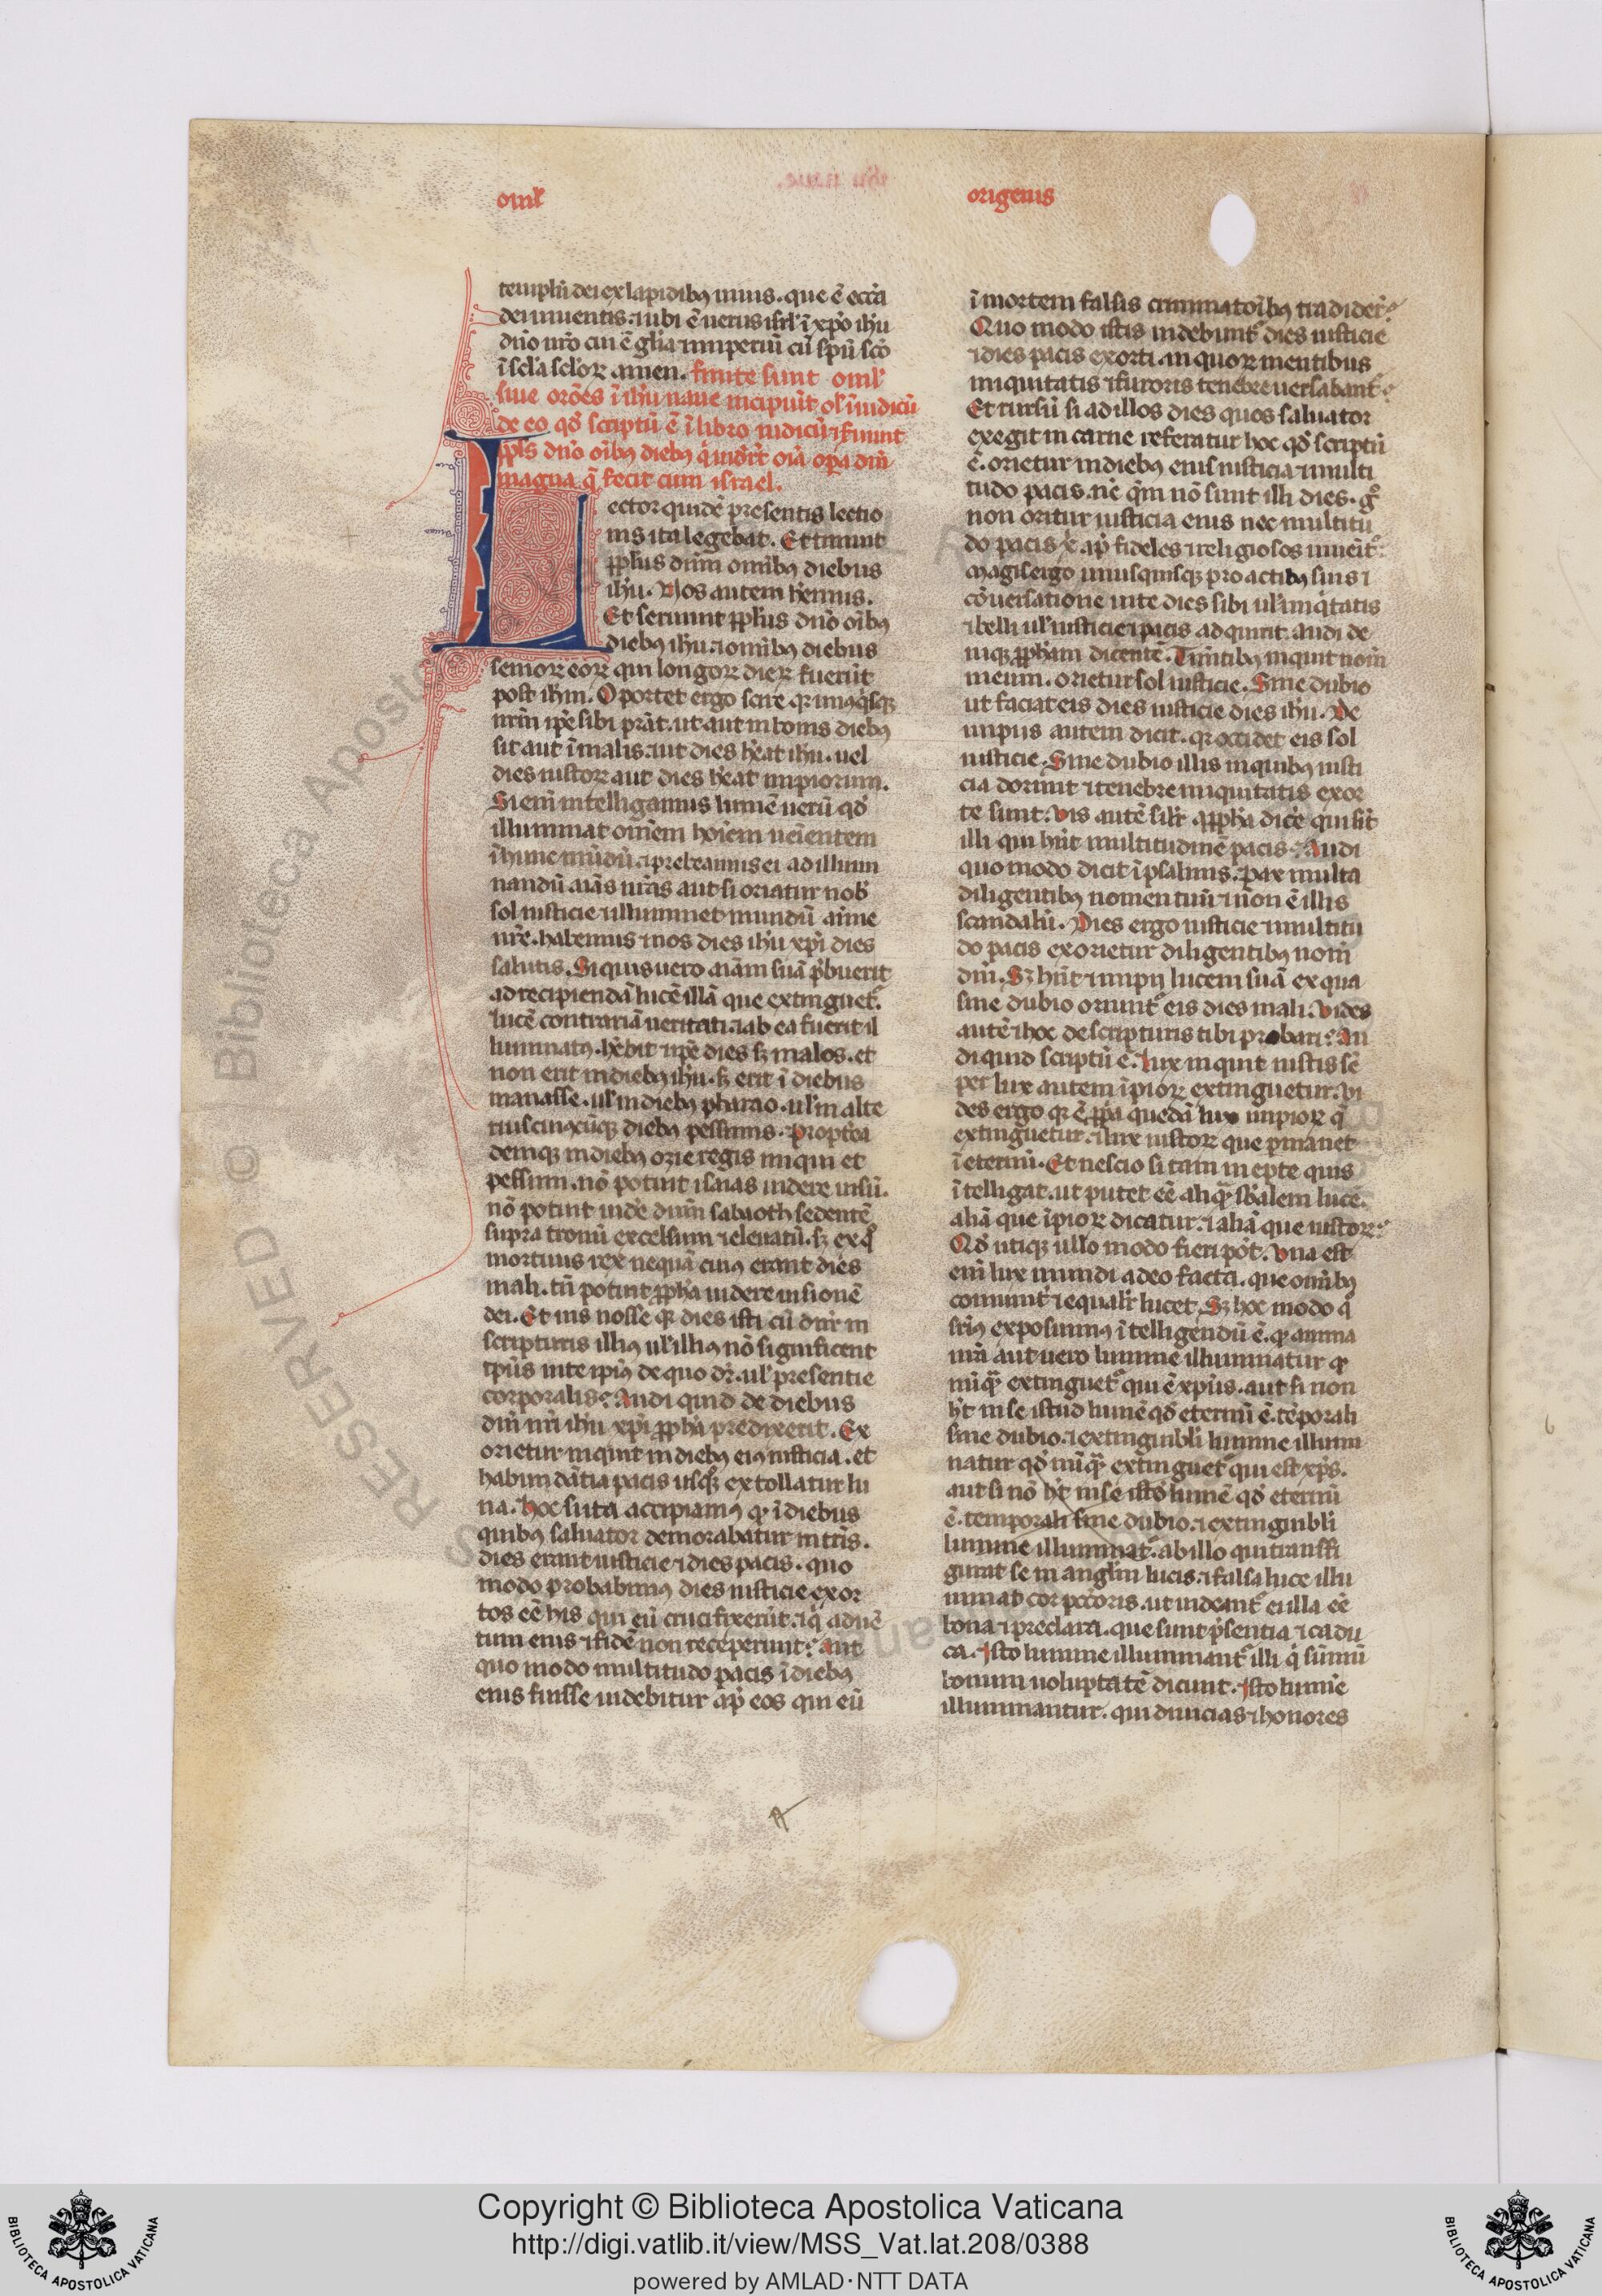 oml'
origenis
templū dei ex lapidibꝯ uiuis. que ē ecc̄a
dei uiuentis. ⁊ ubi ē uerus isrl' ī xp̄o ih'u
dn̄o nr̄o cui ē gl'ia ⁊ imperiū cū sp̄u sc̄o
ī scl'a scl'oꝝ amen. finite sunt oml'
siue orōes ī ih'u naue incipiūt
de eo qd' scriptū ē ī libro iudicū
magna q̄ fecit cum israel.
Lector quidē presentis lectio
nis ita legebat. Et timuit
pp̄lus dn̄m omībꝯ diebus
ih'u. Nos autem h'emus.
Et seruiuit pp̄lus dn̄o oībꝯ
diebꝯ ih'u. ⁊ omībꝯ diebus
senioꝝ eoꝝ qui longoꝝ dieꝝ fuerūt
post ih'm. Oportet ergo scire
nr̄m ip̄e sibi prāt. ut aut in bonis diebꝯ
sit aut ī malis. aut dies h'eat ih'u. uel
dies iustoꝝ aut dies h'eat impiorum.
Si eni intelligamus lumē uerū qd'
illuminat omnem hoīem uenientem
ī hunc mūdū. ⁊ prebeamus ei ad illumi
nandū aīas nr̄as aut si oriatur nob'
sol iusticie ⁊ illuminet mundū aīme
nr̄e. habemus ⁊ nos dies ih'u xp̄i dies
salutis. Si quis uero aīam suā p̄buerit
ad recipiendā lucē illā que extinguet᷑.
lucē contrariā ueritati. ⁊ ab ea fuerit il
luminatꝯ. h'ebit ⁊ ip̄e dies sꝫ malos. et
non erit in diebꝯ ih'u. sꝫ erit ī diebus
manasse. ul' in diebꝯ pharao. ul' in alte
rius cuiꝯcūqꝫ diebꝯ pessimis. Propt̄ea
deniqꝫ in diebꝯ ozie regis iniqui et
pessimi. nō potuit isaias uidere uisū.
nō potuit uidē dn̄m sabaoth sedentē
supra tronū excelsum ⁊ eleuatū. sꝫ ex qͦ
mortuus rex nequā cuiꝯ erant dies
mali. tū potuit pp̄h'a uidere uisionē
dei. Et uis nosse qꝛ dies isti cū dn̄r in
scripturis illiꝯ ul' illiꝯ nō significent
tp̄us uite ip̄iꝯ de quo dr̄. ul' presentie
corporalis? Audi quid de diebus
dn̄i nr̄i ih'u xp̄i pp̄h'a predixerit. Ex
orietur inquit in diebꝯ eiꝯ iusticia. et
habundātia pacis usqꝫ extollatur lu
na. hoc si ita accipiamꝯ qꝛ ī diebus
quibꝯ saluator demorabatur in tr̄is.
dies erant iusticie ⁊ dies pacis. quo
modo probabimꝯ dies iusticie exor
tos eē his qui eū crucifixerūt. ⁊ q' aduē
tum eius ⁊ fidē non receperunt? aut
quo modo multitudo pacis ī diebꝯ
eius fuisse uidebitur ap' eos qui eū
ī mortem falsis criminatoībꝯ tradider̄?
Quo modo istis uidebunt᷑ dies iusticie
⁊ dies pacis exorti. in quoꝝ mentibus
iniquitatis ⁊ furoris tenebre uersabant᷑?
Et rursū si ad illos dies quos saluator
exegit in carne referatur hoc qd' scriptū
ē. orietur in diebꝯ eius iusticia ⁊ multi
tudo pacis. nē qm̄ nō sunt illi dies. gͦ
non oritur iusticia eius nec multitu
do pacis ⁊ ap' fideles ⁊ religiosos
Magis ergo unusquisqꝫ pro actibꝯ suis ⁊
cōuersatione uite dies sibi ul' iniq'tatis
⁊ belli ul' iusticie ⁊ pacis adquirit. audi de
niqꝫ pp̄h'am dicentē. Timētibꝯ inquit nom̄
meum. orietur sol iusticie. Sine dubio
ut faciat eis dies iusticie dies ih'u. De
impiis autem dicit. qꝛ occidet eis sol
iusticie. Sine dubio illis in quibꝯ iusti
cia dormit ⁊ tenebre iniquitatis exor
te sunt. Vis autē silr̄ a pp̄h'a dicē qui sīt
illi qui hn̄t multitudinē pacis? Audi
quo modo dicit ī psalmis. Pax multa
diligentibꝯ nomen tuū ⁊ non ē illis
scandalū. Dies ergo iusticie ⁊ multitu
do pacis exorietur diligentibꝯ nom̄
dn̄i. Sꝫ hn̄t ⁊ impij lucem suā ex qua
sine dubio oriunt᷑ eis dies mali. Vides
autē ⁊ hoc de scripturis tibi probari? Au
di quid scriptū ē. Lux inquit iustis sē
per lux autem īpioꝝ extinguetur. Vi
des ergo qꝛ ē pp̄a quedā lux impioꝝ q̄
extinguetur. ⁊ lux iustoꝝ que pmanet
ī eternū. Et nescio si tam inepte quis
ītelligat. ut putet eē aliq̄ sb'alem lucē.
aliā que īpioꝝ dicatur. ⁊ aliā que iustoꝝ?
Qd' utiqꝫ ullo modo fieri pōt. Vna est
eni lux mundi a deo facta. que omībꝯ
comunit̄ ⁊ equalit̄ lucet. Sꝫ hoc modo q'
seriꝯ exposuimꝯ ītelligendū ē. qꝛ anima
nr̄a aut uero lumine illuminatur qꝛ
nūq̄ extinguet᷑ qui ē xp̄us. aut si non
h't in se istud lumē qd' eternū ē. tēporali
sine dubio. ⁊ extinguibli lumine illumi
natur qd' nūq̄ extinguet᷑ qui est xp̄s.
aut si nō h't in se istd' lumē qd' eternū
ē. temporali sine dubio. ⁊ extinguibli
lumine illuminat᷑. ab illo qui transfi
gurat se in angl'm lucis. ⁊ falsa luce illu
minat cor peccoris. ut uideant᷑ ei illa eē
bona ⁊ preclara. que sunt p̄sentia ⁊ cadu
ca. Isto lumine illuminant᷑ illi q' sūmū
bonum uoluptatē dicunt. Isto lumīe
illuminantur. qui diuicias ⁊ honores
Copyright © Biblioteca Apostolica Vaticana
http://digi.vatlib.it/view/MSS_Vat.lat.208/0388
powered by AMLAD·NTT DATA
BIBLIOTECA APOSTOLICA VATICANA
BIBLIOTECA APOSTOLICA VATICANA